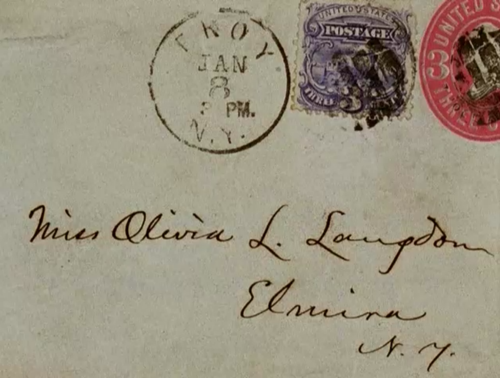 TROY
JAN
8
PM.
N.Y.
UNITED STATES
POSTAGE
THREE 3 CENTS
UNITED
3
THREE
Miss Olivia L. Langdon
Elmira
N.Y.